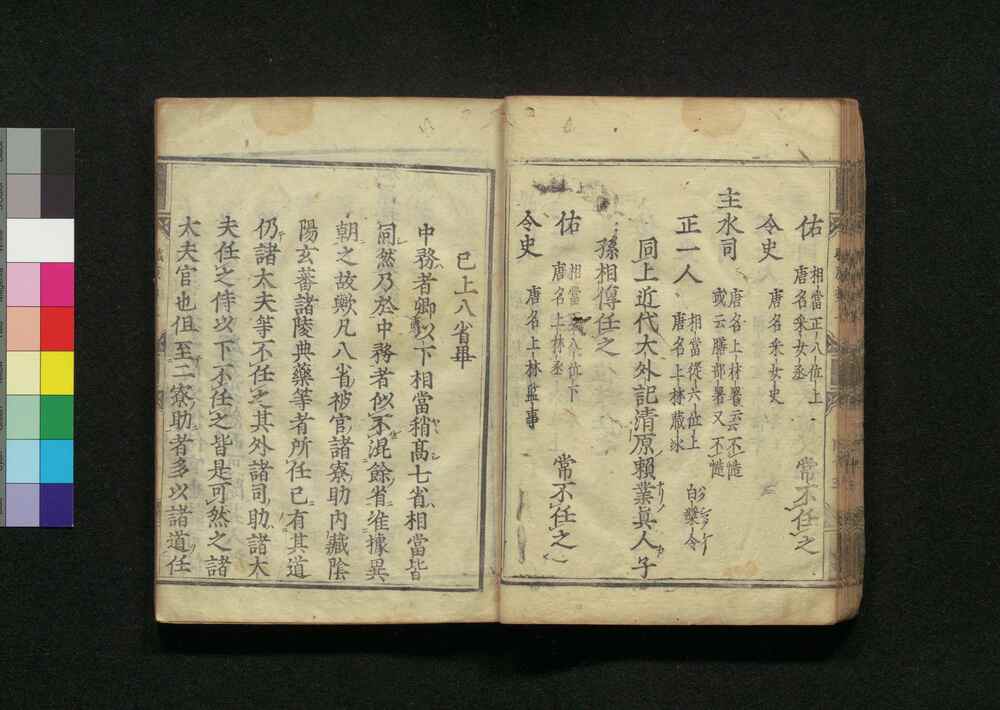 佑 相當正八位上 常不任之
唐名采女丞
令史 唐名采女史
主水司 唐名上林署云不慥
或云膳部署又不慥
正一人 相當從六位上
唐名上林藏氷
同上近代大外記清原賴業眞人子
孫相傳任之
佑 相當 八位下 常不任之
唐名上林丞
令史 唐名上林監事
已上八省畢
中務者卿以下相當稍高七省相當皆
同然乃於中務者似不混餘省准據異
朝之故歟凡八省被官諸寮助内藏陰
陽玄蕃諸陵典藥等者所任已有其道
仍諸太夫等不任之其外諸司助諸大
夫任之侍以下不任之皆是可然之諸
太夫官也但至二寮助者多以諸道任